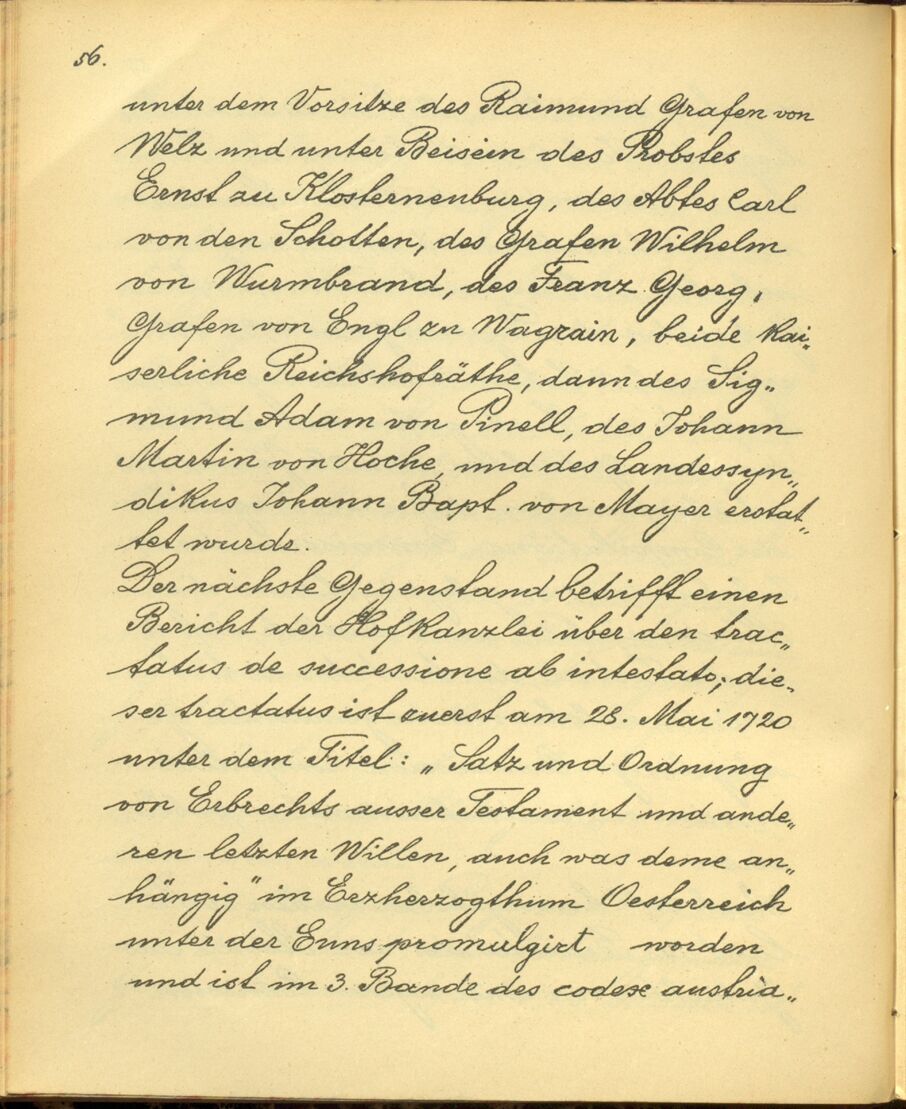 56.
unter dem Vorsitze des Raimund Grafen von
Welz und unter Beisein des Probstes
Ernst zu Klosterneuburg, des Abtes Carl
von den Schotten, des Grafen Wilhelm
von Wurmbrand, des Franz Georg,
Grafen von Engl zu Wagrain, beide kai„
serliche Reichshofräthe, dann des Sig„
mund Adam von Pinell, des Johann
Martin von Hocke, und des Landessyn„
dikus Johann Bapt. von Mayer erstat„
tet wurde.
Der nächste Gegenstand betrifft einen
Bericht der Hofkanzlei über den trac„
tatus de successione ab intestato; die„
ser tractatus ist zuerst am 28. Mai 1720
unter dem Titel: „Satz und Ordnung
von Erbrechts ausser Testament und ande„
ren letzten Willen, auch was deme an„
hängig" im Erzherzogthum Oesterreich
unter der Enns promulgirt worden
und ist im 3. Bande des codex austria„